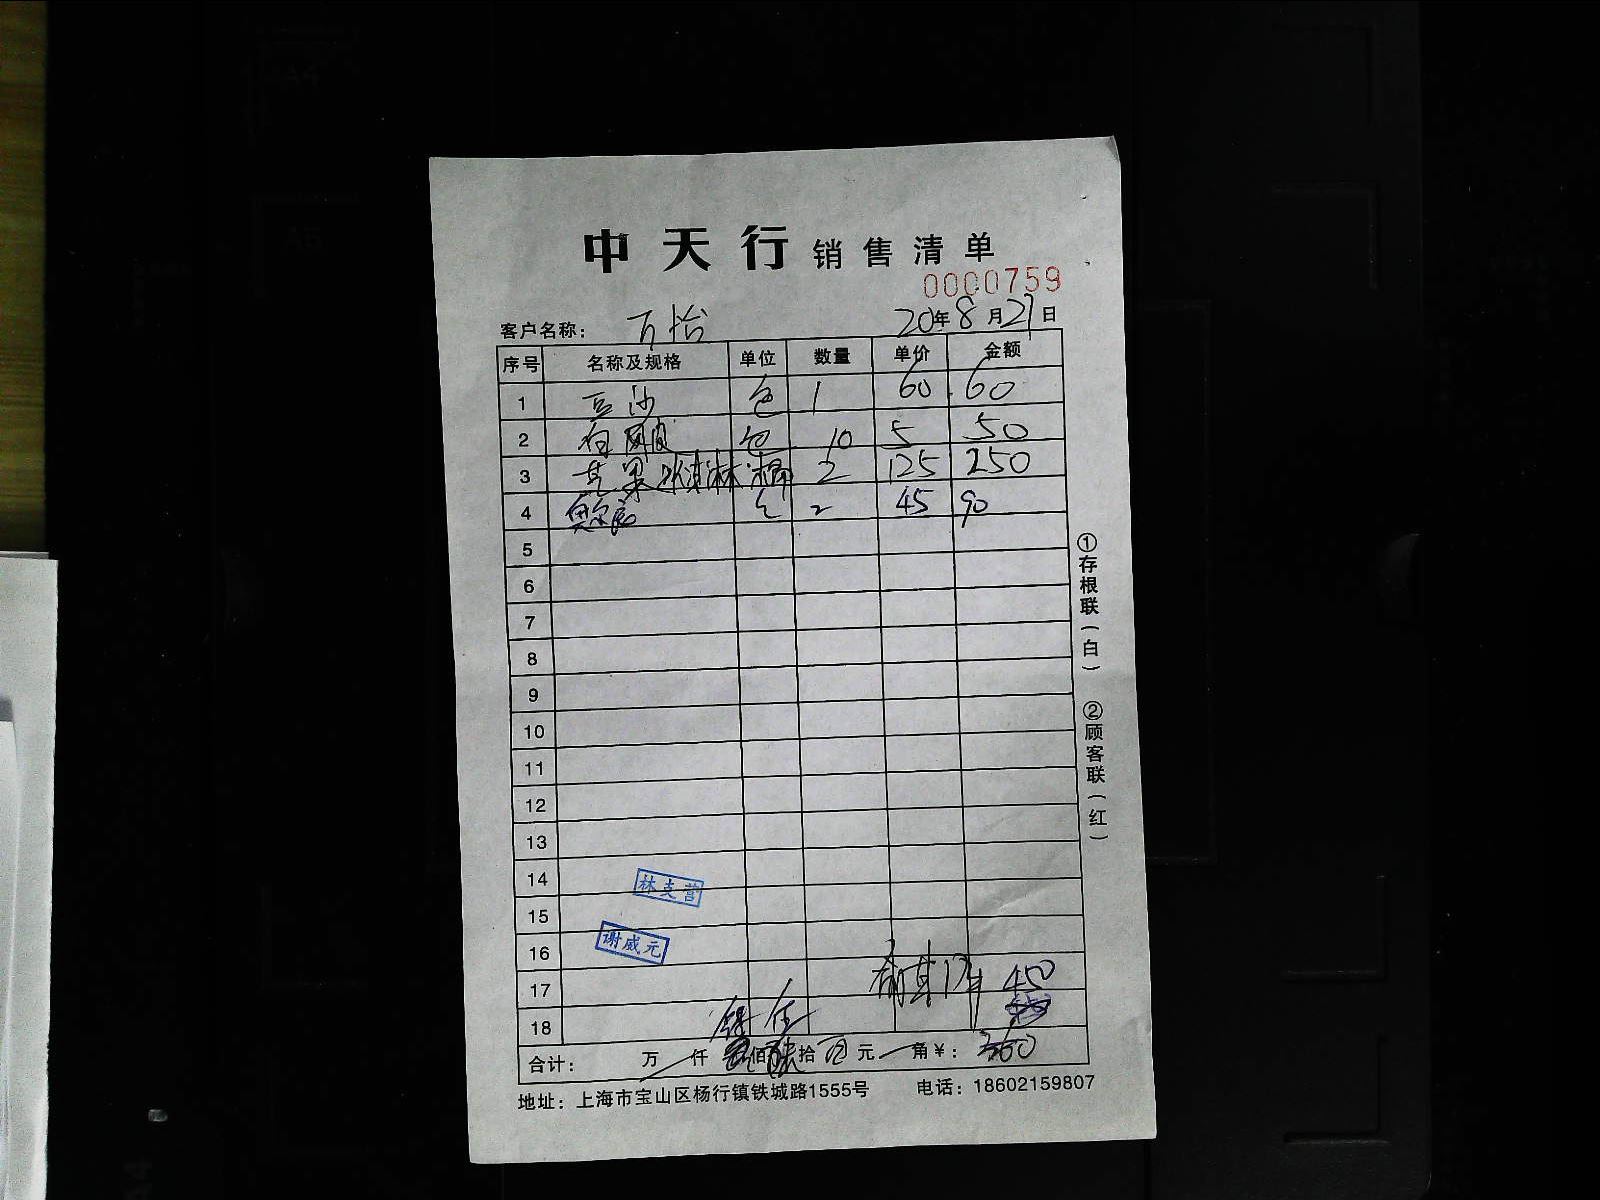 中天行 销售清单
0000759
客户名称： 万怡 20年8月21日
序号 名称及规格 单位 数量 单价 金额
1 豆沙 包 1 60 60
2 包 10 5 50
3 苹果冰淇淋 桶 2 125 250
4 奥尔良 包 2 45 90
5
6
7
8
9
10
11
12
13
14
15
16
17 450
18
林支营
谢威元
合计： 万 仟 佰 拾 元 角¥： 360
地址：上海市宝山区杨行镇铁城路1555号 电话：18602159807
①存根联（白）
②顾客联（红）